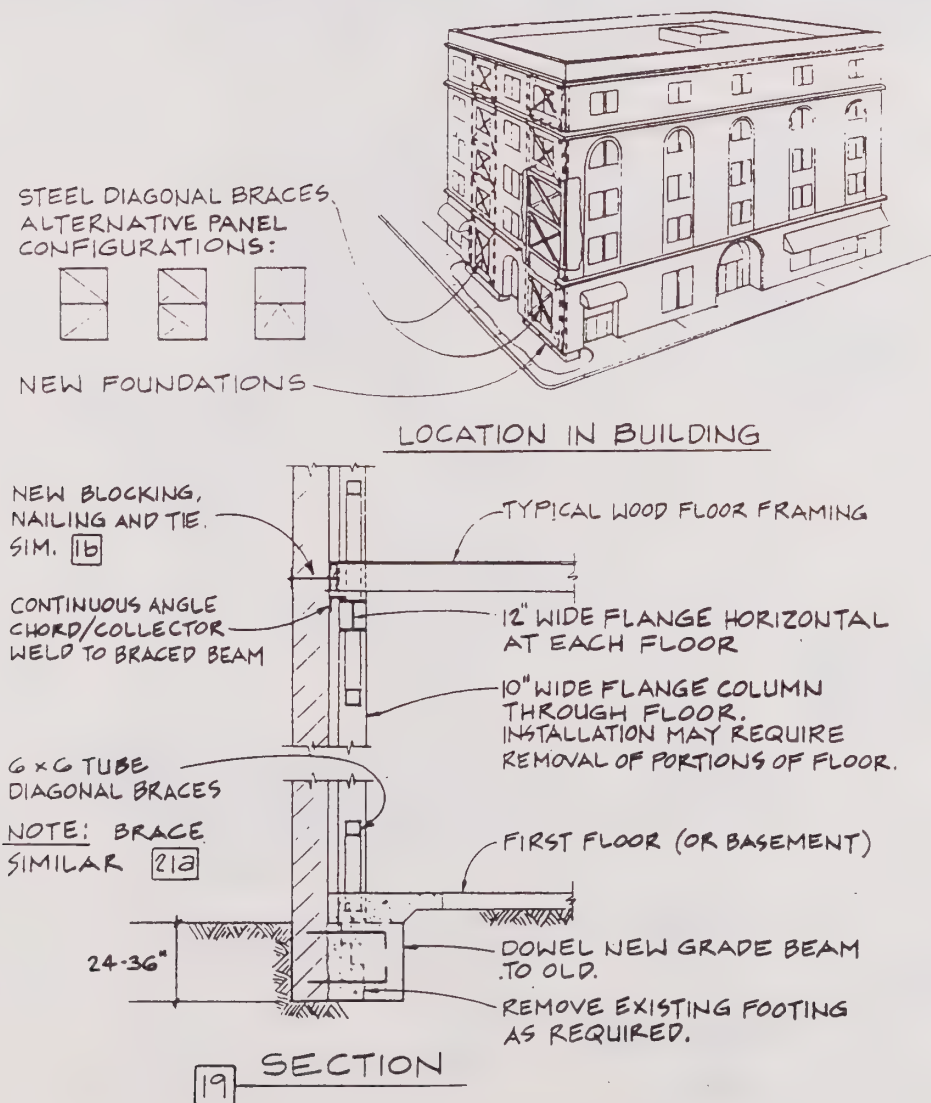 STEEL DIAGONAL BRACES
ALTERNATIVE PANEL
CONFIGURATIONS:
NEW FOUNDATIONS
LOCATION IN BUILDING
NEW BLOCKING,
NAILING AND TIE.
SIM. 1b
TYPICAL WOOD FLOOR FRAMING
CONTINUOUS ANGLE
CHORD/COLLECTOR
WELD TO BRACED BEAM
12" WIDE FLANGE HORIZONTAL
AT EACH FLOOR
10" WIDE FLANGE COLUMN
THROUGH FLOOR.
INSTALLATION MAY REQUIRE
REMOVAL OF PORTIONS OF FLOOR.
6 x 6 TUBE
DIAGONAL BRACES
NOTE: BRACE
SIMILAR 21a
FIRST FLOOR (OR BASEMENT)
24-36"
DOWEL NEW GRADE BEAM
TO OLD.
REMOVE EXISTING FOOTING
AS REQUIRED.
19 SECTION